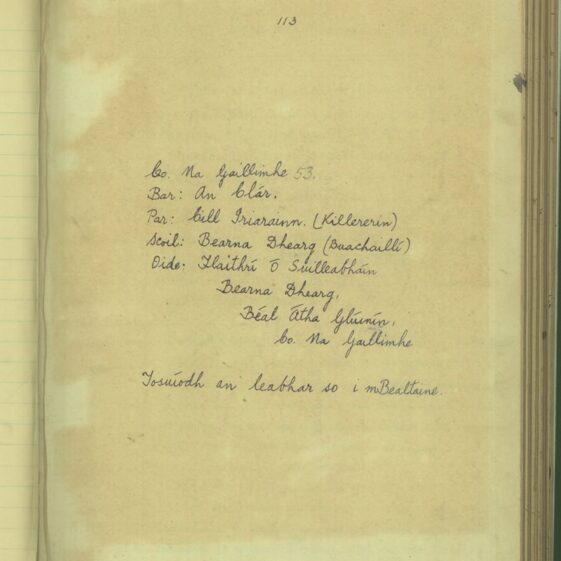 113
Co. Na Gaillimhe 53.
Bar: An Clár.
Par: Cill Iriarainn. (Killererin)
Scoil: Bearna Dhearg (Buachaillí)
Oide: Flaithrí Ó Súilleabháin
Bearna Dhearg,
Béal Átha Glúinín,
Co. Na Gaillimhe
Tosuíodh an leabhar so i mBealtaine.